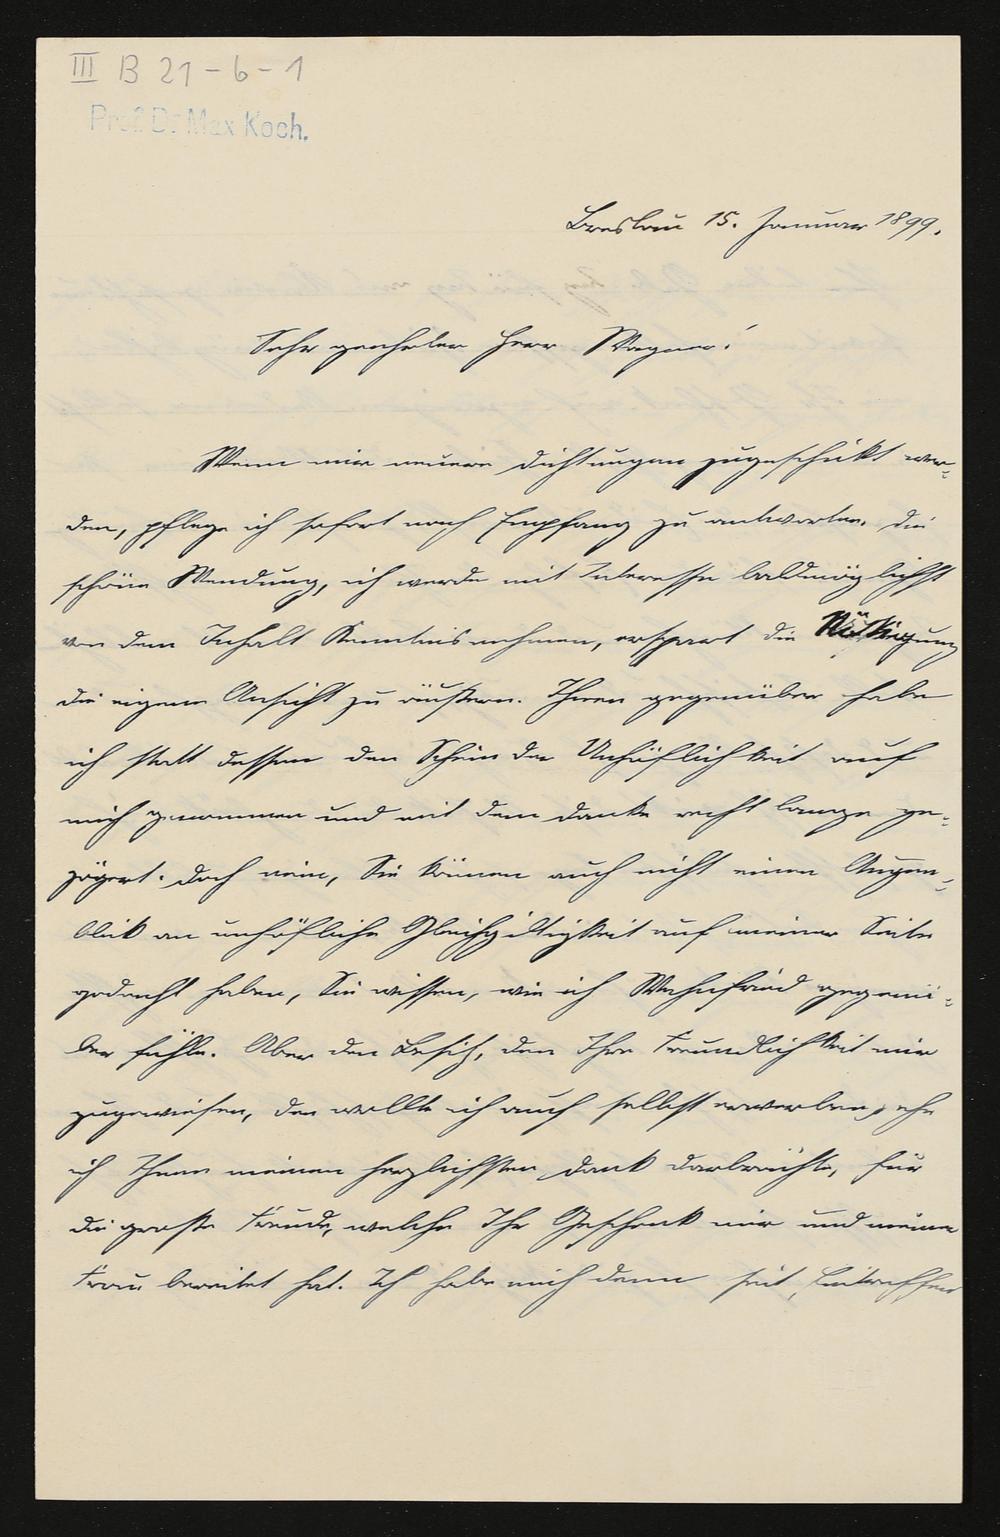 III B 21-6-1
Prof. Dr. Max Koch.
Breslau 15. Januar 1899.
Sehr geehrter Herr Wagner!
Wenn mir neuere Dichtungen zugeschikt wer-
den, pflege ich sofort nach Empfang zu antworten. Die
schöne Wendung, ich werde mit Interesse baldmöglichst
von dem Inhalt Kenntnis nehmen, erspart die Nötigung
die eigene Ansicht zu äußern. Ihnen gegenüber habe
ich statt dessen den Schein der Unhöflichkeit auf
mich genommen und mit dem Danke recht lange ge-
zögert. Doch nein, Sie können auch nicht einen Augen-
blik an unhöfliche Gleichgiltigkeit auf meiner Seite
gedacht haben, Sie wissen, wie ich Wahnfried gegenü-
ber fühle. Aber den Besitz, den Ihre Freundlichkeit mir
zugewiesen, den wollte ich auch selbst erwerben, ehe
ich Ihnen meinen herzlichsten Dank darbrächte, für
die große Freude, welche Ihr Geschenk mir und meiner
Frau bereitet hat. Ich habe mich denn seit Eintreffen